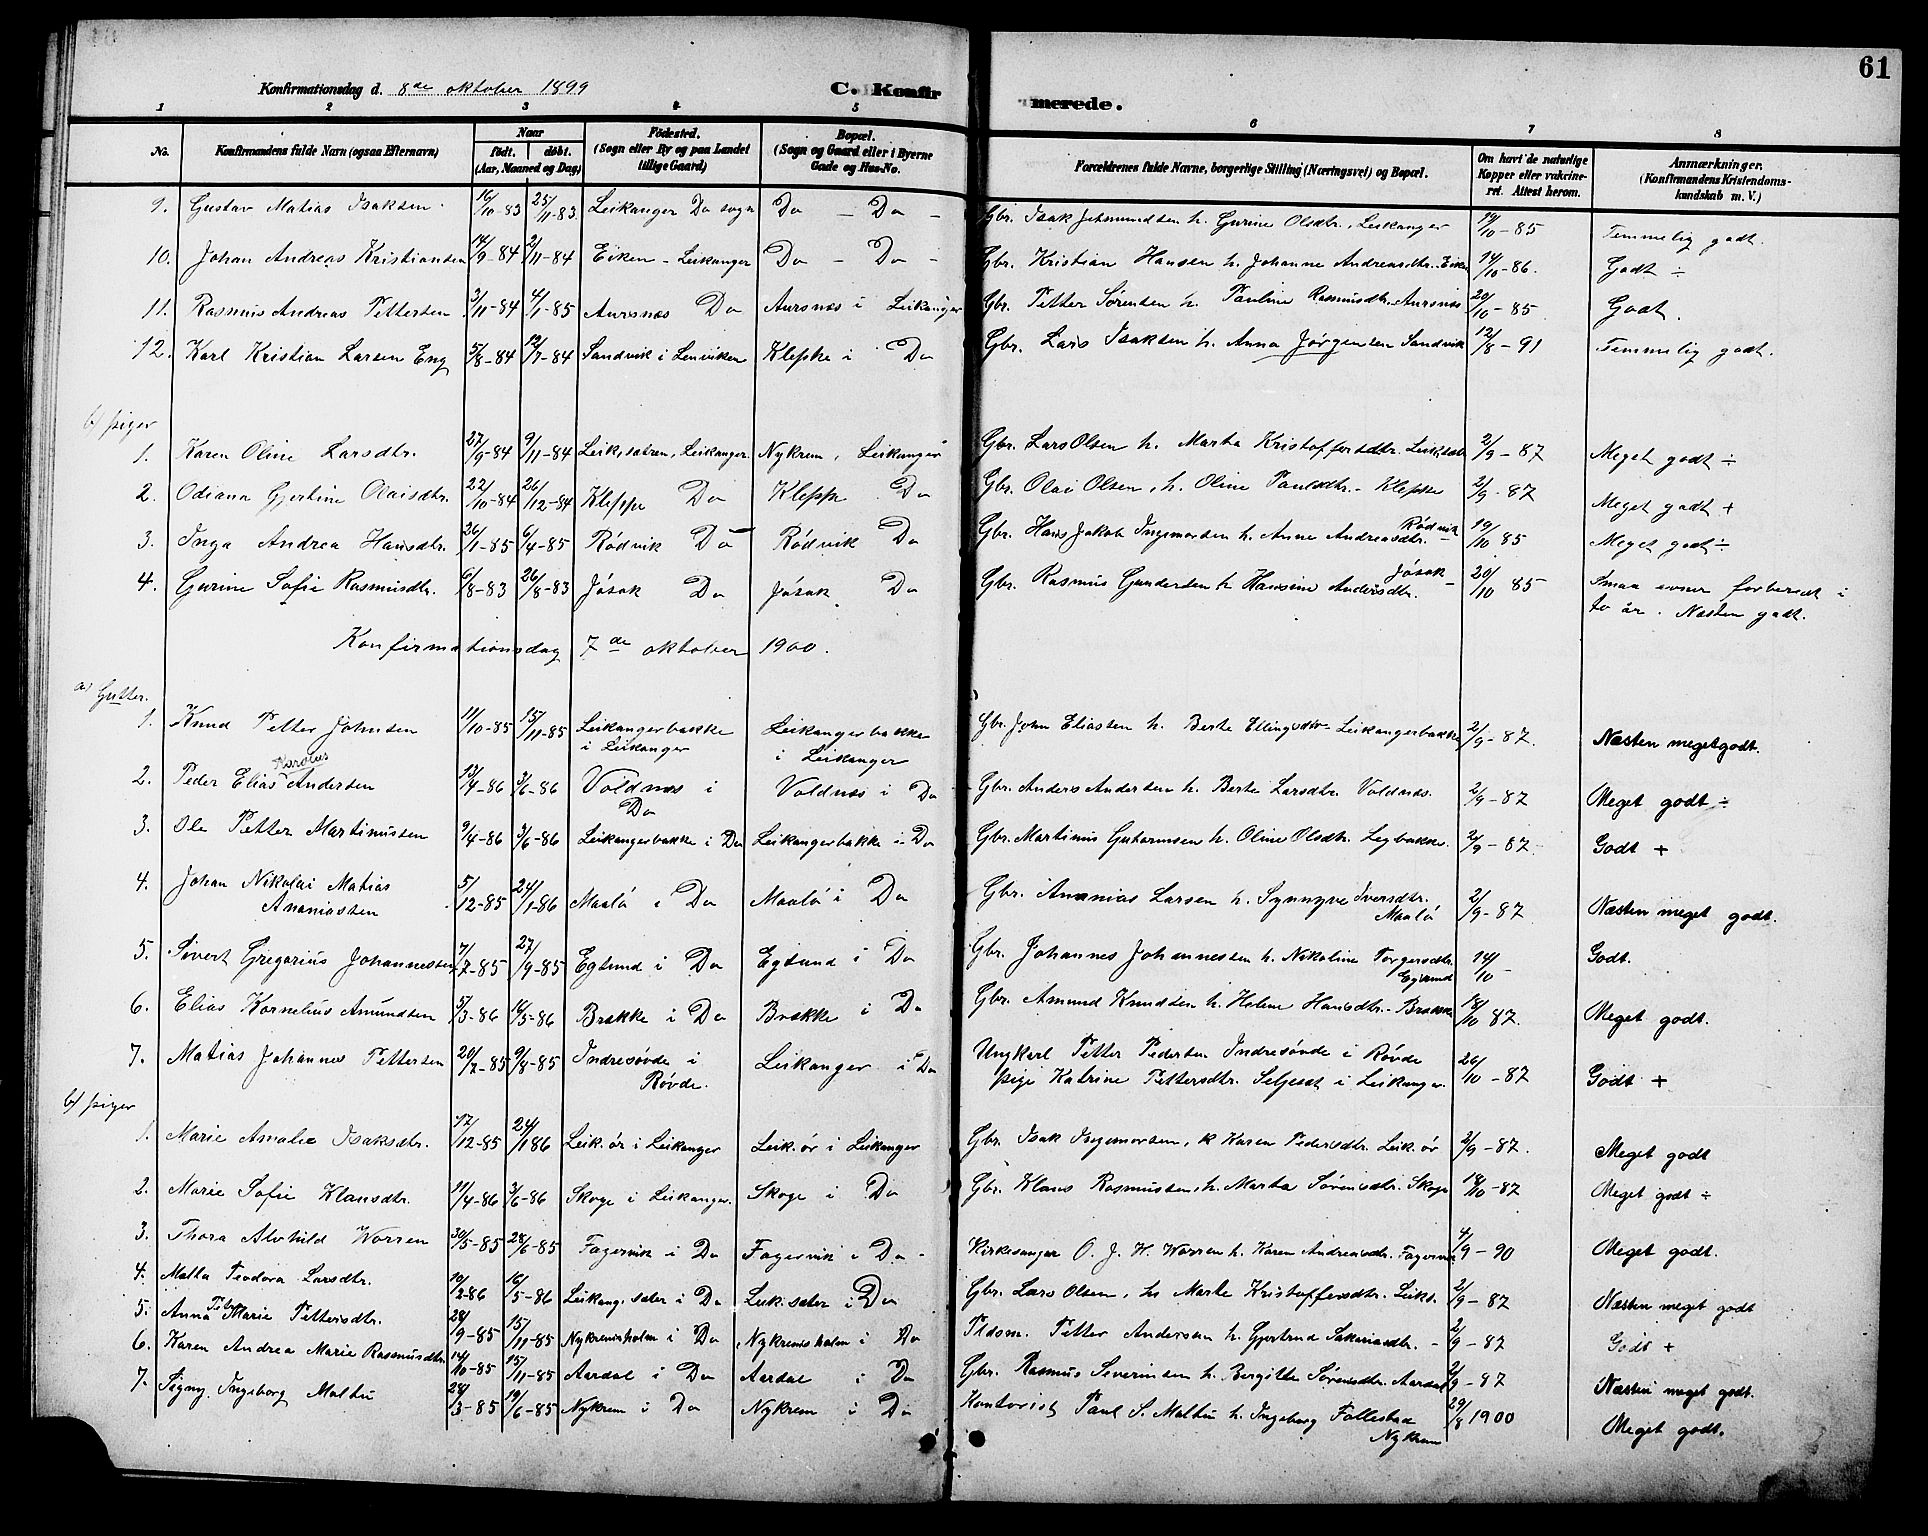 61
Konfirmationsdag d. 8de oktober 1899
C. Konfirmerede.
1 2 3 4 5 6 7 8
No. Konfirmandens fulde Navn (ogsaa Efternavn) Naar født. døbt. (Aar, Maaned og Dag) Fødested. (Sogn eller By og paa Landet tillige Gaard) Bopæl. (Sogn og Gaard eller i Byerne Gade og Hus-No. Forældrenes fulde Navne, borgerlige Stilling (Næringsvei) og Bopæl. Om havt de naturlige Kopper eller vakcineret. Attest herom. Anmærkninger. (Konfirmandens Kristendomskundskab m. V.)
9. Gustav Matias Isaksen 16/10-83 25/11-83 Leikanger Do sogn Do - Do - Gbr. Isak Johnundsen h. Gurine Olsdtr., Leikanger 19/10-85 Temmelig godt.
10. Johan Andreas Kristiansen 14/9-84 2/11-84 Eiken - Leikanger Do - Do - Gbr. Kristian Hansen h. Johanne Andreasdtr. Eiken 14/10-86. Godt ÷
11. Rasmus Andreas Pettersen 3/11-84 4/1-85 Aursnæs Do Aursnæs i Leikanger Gbr. Petter Sørensen h. Pauline Rasmusdtr. Aursnæs 20/10-85. Godt.
12. Karl Kristian Larsen Eng 5/8-84 Sandvik i Lenviken Kleppe i Do Gbr. Lars Isaksen h. Anna Jørgensen Sandvik 12/8-91 Temmelig godt.
b/ piger
1. Karen Oline Larsdtr. 27/9-84 9/11-84 Leik.sætren, Leikanger Nykrem, Leikanger Gbr. Lars Olsen h. Marta Kristoffersdtr. Leiksæt 2/9-87 Meget godt ÷
2. Odiana Gjertine Olaisdtr. 22/10-84 26/12-84 Kleppe Do Kleppe Do Gbr. Olai Olsen, h. Oline Paulsdtr. - Kleppe 2/9-87 Meget godt +
3. Inga Andrea Hansdtr. 26/1-85 6/4-85 Rødvik Do Rødvik Do Gbr. Hans Jakob Ingemorsen h. Anne Andreasdtr. Rødvik 19/10 85 Meget godt ÷
4. Gurine Sofie Rasmusdtr. 6/8-83 26/8-83 Jøsok Do Jøsok Do Gbr. Rasmus Gundersen h. Hansine Andersdtr. Jøsok 20/10 85 Smaa evner forberedt i
to år. Næsten godt.
Konfirmationsdag 7de oktober 1900.
a) Gutter.
1. Knud Petter Johnsen 11/10-85 15/11-85 Leikangerbakke Leikangerbakke Gbr. John Eliassen h. Berte Ellingsdtr Leikangerbakke 2/9-87. Næsten meget godt.
i Leikanger i Leikanger
2. Peder Elias Karolus Andersen 13/4-86 3/6-86 Voldnæs i Do Voldnæs i Do Gbr. Anders Andersen h. Berte Larsdtr. Voldnæs. 2/9-87 Meget godt ÷
3. Ole Petter Martinussen 9/4-86 3/6-86 Leikangerbakke i Do Leikangerbakke i Do Gbr. Martinus Guttormsen h. Oline Olsdtr. Legbakke. 2/9-87 Godt +
4. Johan Nikolai Matias 5/12-85 24/1-86 Maalø i Do Maalø i Do Gbr. Ananias Larsen h. Synnøve Iversdtr. 2/9-87. Næsten meget godt.
Ananiassen Maalø
5. Sivert Gregorius Johannessen 7/7-85 27/9-85 Egsund i Do Egsund i Do Gbr. Johannes Johannessen h. Nikoline Torgersdtr. Egsund 14/10 - Godt.
6. Elias Kornelius Amundsen 5/3-86 16/5-86 Brække i Do Brække i Do Gbr. Amund Knudsen h. Helene Hansdtr. - Brække 18/10 87. Meget godt.
7. Matias Johannes Pettersen 20/7-85 9/8-85 Indresøvde i Leikanger i Do Ungkarl Petter Pedersen Indresøvde i Røvde 26/10-87 Godt +
Røvde. pige Katrine Pettersdtr. Seljeset i Leikanger.
b/ piger
1. Marie Amalie Isaksdtr. 17/12-85 24/186 Leik.ør i Leikanger Leik.ør i Leikanger Gbr. Isak Ingemorsen, h Karen Pedersdtr. Leik.ør 2/9-87. Meget godt
2. Marie Sofie Klausdtr. 11/4-86 3/6-86 Skoge i Leikanger. Skoge i Do Gbr. Klaus Rasmussen h. Marta Sørensdtr. Skoge 18/10-87 Meget godt ÷
3. Thora Alvhild Worren 30/5-85 28/6-85 Fagervik i Do Fagervik i Do - Kirkesanger O. J. H. Worren h. Karen Andreasdtr. Fagervik 4/9-90 Meget godt.
4. Matta Teodora Larsdtr. 10/3-86 16/5-86 Leikang.sæter i Do Leik.sæter i Do Gbr. Lars Olsen, h Marte Kristoffersdtr. Leiks. 2/9-87 Næsten meget godt
5. Anna Marie Pettersdtr. 28/9-85 15/11-85 Nykremsholm i Do Nykremsholm i Do Pldsm. Petter Andersen h. Gjertrud Sakariasdtr. - 2/9-87 Godt +
6. Karen Andrea Marie Rasmusdtr. 14/10-85 15/11-85 Aardal i Do Aardal i Do Gbr. Rasmus Severinsen h. Bergitte Sørensdtr. Aardal 2/9-87 Næsten meget godt.
7. Signy Ingeborg Maltiu 28/3-85 19/6-85 Nykrem i Do Nykrem i Do Kontorist Paul S. Maltiu h. Ingeborg Follestad 29/8 1900 Meget godt.
Nykrem